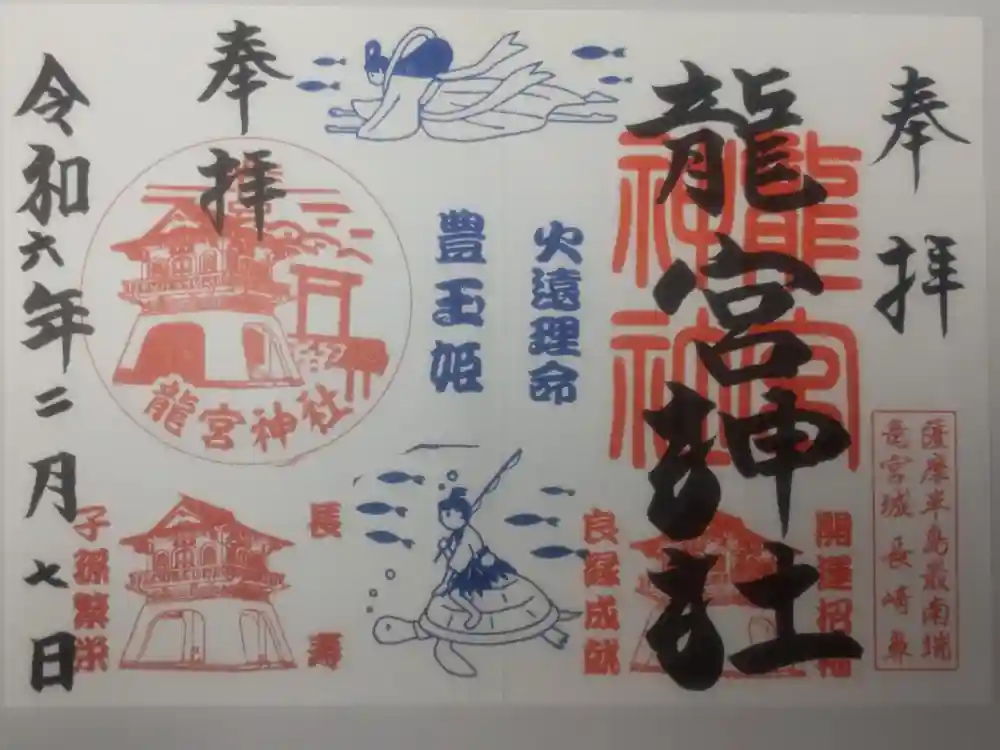 奉拝
龍宮神社
龍宮神社
薩摩半島最南端
竜宮城 長崎鼻
開運招福
良縁成就
火遠理命
豊玉姫
奉拝
龍宮神社
長寿
子孫繁栄
令和六年二月七日